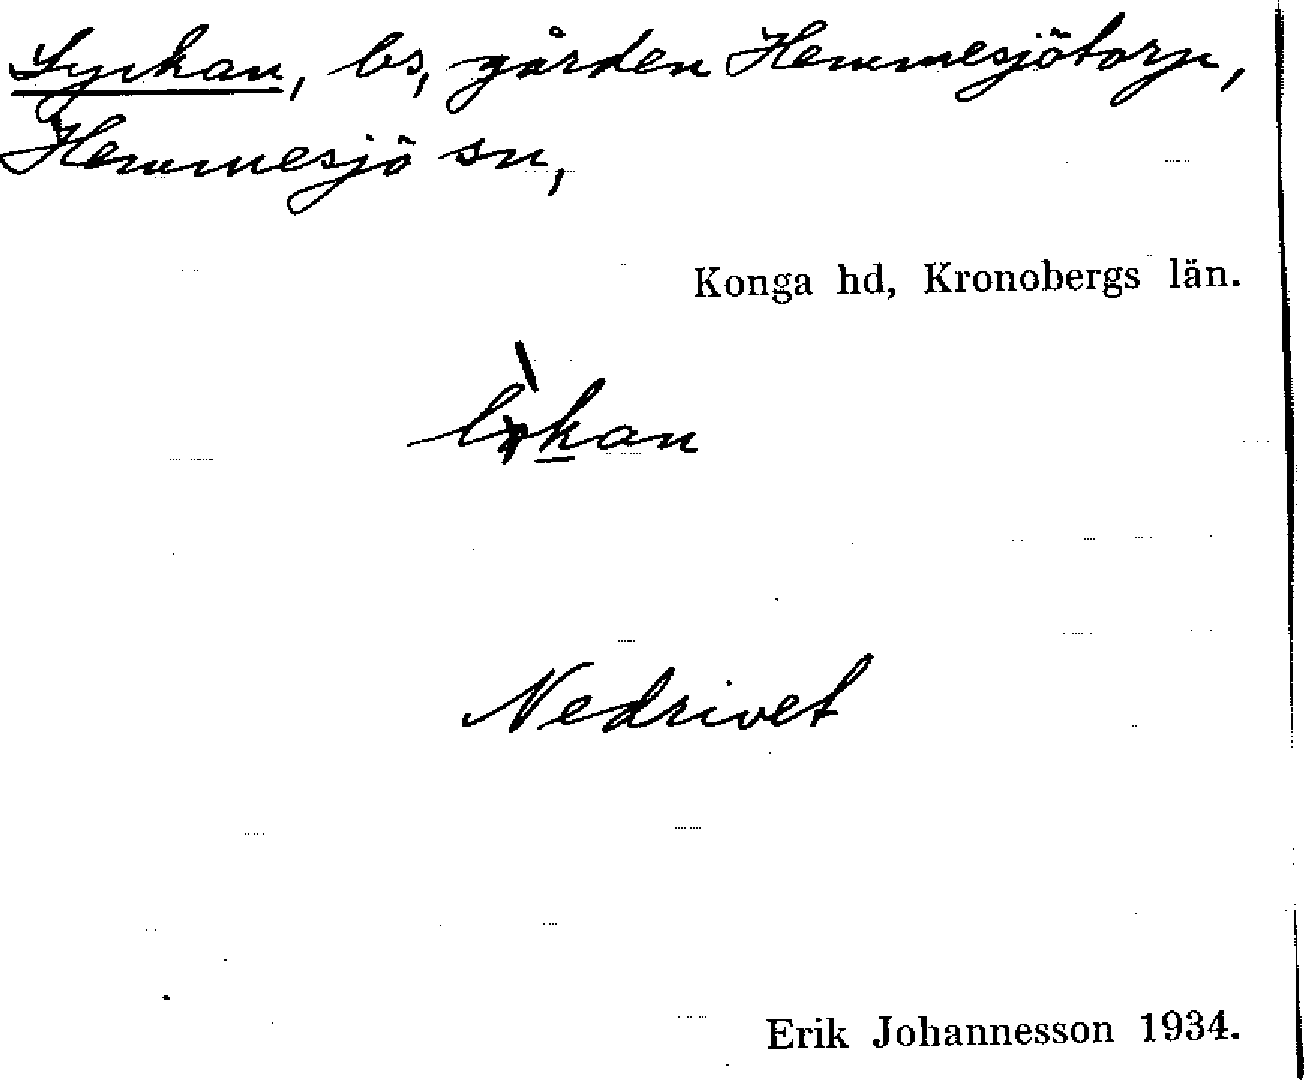 Lyckan, bs, gården Hemmesjötorp,
Hemmesjö sn,
Konga hd, Kronobergs län.
Nedrivet
Erik Johannesson 1934.